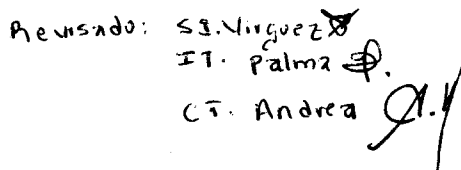 Revisado: SI. Virguez
IT. Palma
CT. Andrea